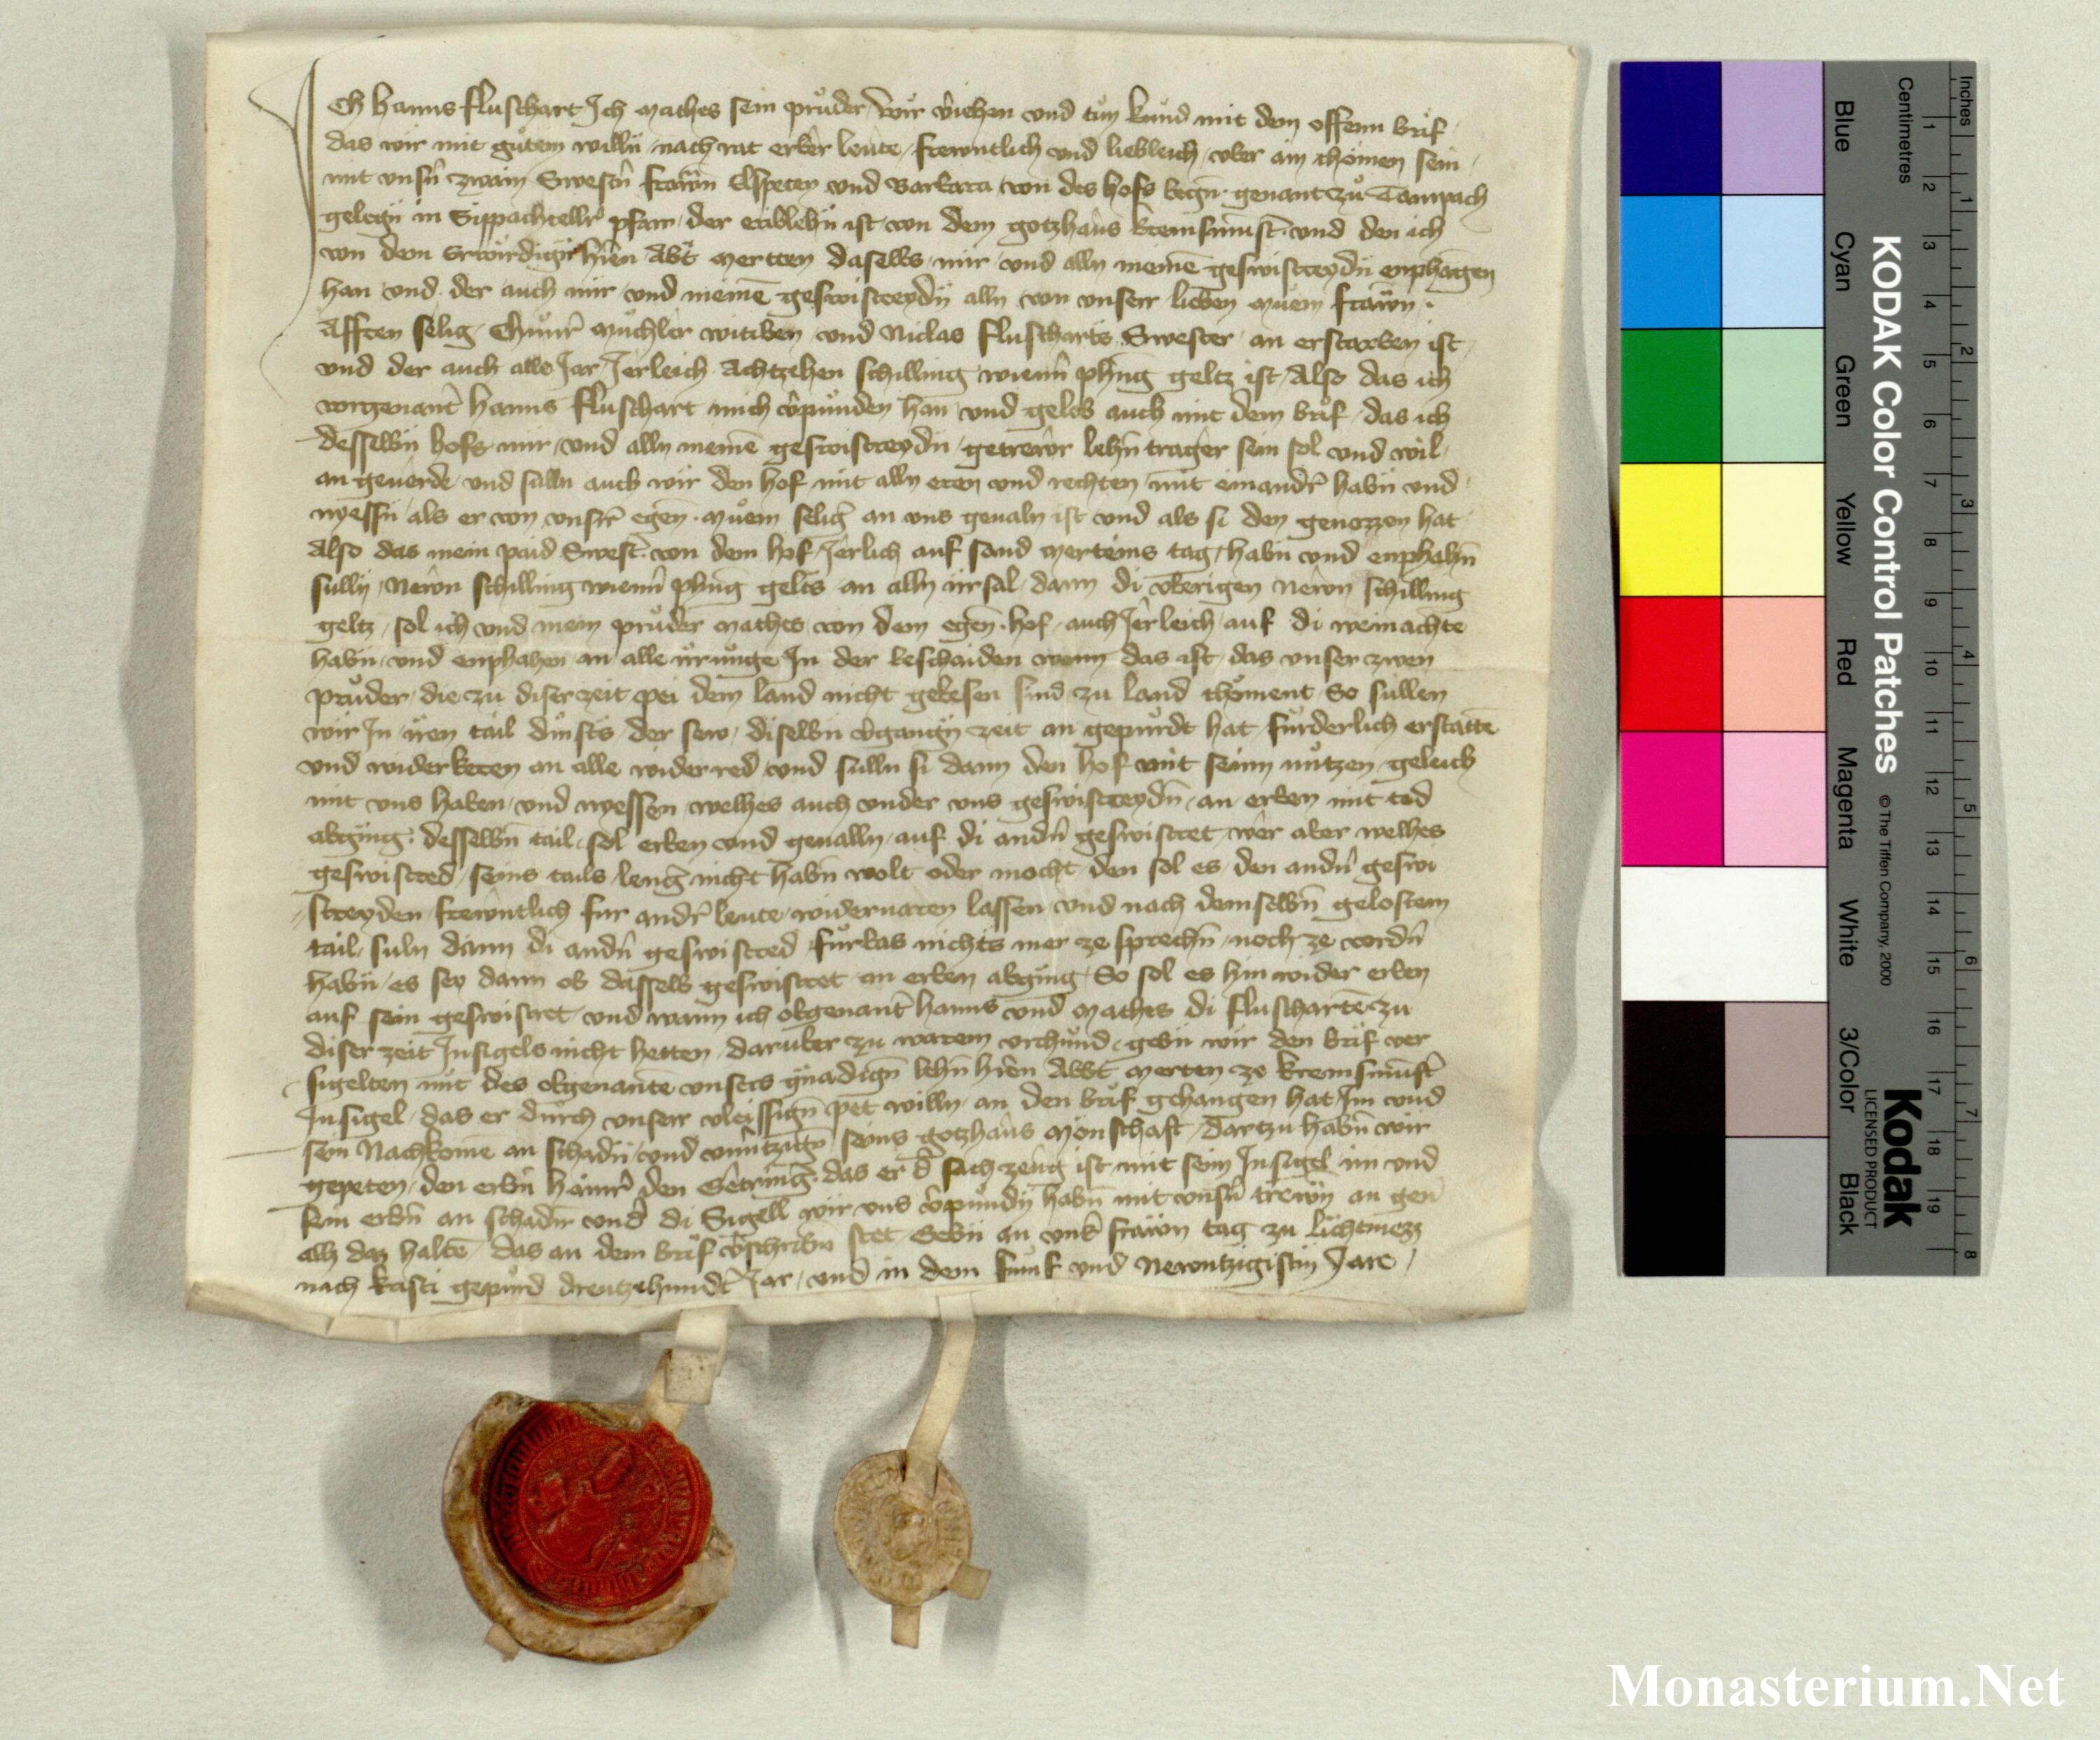 Ich Hanns Fluschart Ich Mathes sein pruder wir veriehen vnd tun kund mit dem offenn brif
das wir mit gutem willn nach rat erber leute frewntlich vnd liebleich vber ain chomen sein
mit vnsern zwain Swestern frawn Elspeten vnd Barbara von des hofs wegen genant zu
gelegn in Sippachteller pfarr der erib lehn ist von dem gotzhaus kremsmunster vnd den ich
von dem Erwirdign herren Abt Mertten daselbs mir vnd alln meinen geswistreydn enphangen
han vnd der auch mir vnd meinen geswistreydn alln von vnserr lieben muem frawn
Afften selig Muchler witiben vnd Niclas Flusscharts Swester an erstorben ist
vnd der auch alle Jar Jerleich Achtzehen schilling wienner phennig geltz ist Also das ich
vorgenanter Hanns Fluschart mich verpunden han vnd gelob auch mit dem brif das ich
desselbn hofs mir vnd alln meinen geswistreydn getrewr lehn trager sein sol vnd wil
an geuerde vnd sulln auch wir den hof mit alln eren vnd rechten mit einander habn vnd
nyessn als er von vnser egen muem selig an vns geualn ist vnd als si den genozzen hat
Also das mein paid Swester von dem hof Jerlich auf sand Merteins tag habn vnd enphahn
sulln Newn schilling wienner phennig gelts an alln irsal dann di vberigen newn schilling
geltz sol ich vnd mein pruder Mathes von dem egen hof auch Jerleich auf di weinachte
habn vnd enphahen an alle irrunge In der beschaiden wenn das ist das vnser zwen
pruder die zu diser zeit pei dem land nicht gebesen sind zu land choment So sullen
wir In iren tail dinsts der sew diselbn vergangn zeit an gepurdt hat furderlich erstatten
vnd widerkeren an alle widerred vnd sulln si dann den hof mit seinn nutzen geleich
mit vns haben vnd nyessen welhes auch vnder vns geswistreydn an erben mit tod
abging desselbn tail sol erben vnd geualln auf di andern geswistret wer aber welhes
geswistred seins tails leng nicht habn wolt oder mocht den sol es den andern geswi
streyden frewntlich fur ander leute wideruaren lassen vnd nach demselbn gelostem
tail suln dann di andern geswistred furbas nichts mer ze sprechn noch ze vordern
habn es sey dann ob dasselb geswistret an erben abging So sol es hin wider erben
auf sein geswistret vnd wann ich obgenanter Hanns vnd Mathes di Flusscharten zu
diser zeit Insigels nicht hetten daruber zu warem vrchund gebn wir den brif ver
sigelten mit des obgenanten vnsers gnadign lehn herren Abbt Merten ze kremsmunster
Insigel das er durch vnserr vleissign pet willn an den brif gehangen hat Im vnd
sein Nachkomen an schadn vnd seins gotzhaus dartzu habn wir
gepeten den erbern den das er der sach zeug ist mit seim Insigel im vnd
sein erbn an schadn vnd di Sigell wir vns verpundn habn mit vnsern trewn an
alls daz halten das an dem brif verschribn stet Gebn an vnser frawn tag zu lichtmezz
nach kristi gepurd dreutzehundert Jar vnd in dem funf vnd Newntzigistin Jare
KODAK Color Control Patches © The Tiffen Company, 2000
Kodak
LICENSED PRODUCT
Blue Cyan Green Yellow Red Magenta White 3/Color Black
Centimetres 1 2 3 4 5 6 7 8 9 10 11 12 13 14 15 16 17 18 19
Inches 1 2 3 4 5 6 7 8
Monasterium.Net